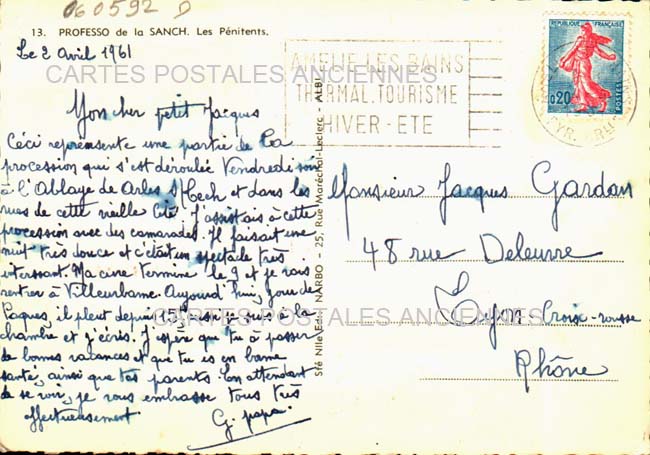 060592 D
13. PROFESSO de la SANCH. Les Pénitents.
Le 2 Avril 1961
Mon cher petit Jacques
Céci représente une partie de la
procession qui s'est déroulée Vendredi soir
à l'Abbaye de Arles s/Tech et dans les
rues de cette vieille Cité. J'assistais à cette
procession avec des camarades. Il faisait une
nuit très douce et c'était un spectacle très
interssant. Ma cure termine le 9 et je vais
rentrer à Villeurbane. Aujourd'hui, jour de
Paques, il pleut depuis 15h aussi je suis à la
chambre et j'écris. J'espère que tu à passer
de bonnes vacances et que tu es en bonne
santé, ainsi que tes parents. En attendant
de se voir, je vous embrasse tous très
affectueusement
G. papa.
Sté Nlle Edit. NARBO - 25, Rue Maréchal-Leclerc - ALBI
AMELIE LES BAINS
THERMAL. TOURISME
HIVER - ETE
REPUBLIQUE FRANÇAISE
0,20
POSTES
PYR. ORIE
Monsieur Jacques Gardon
48 rue Deleuvre
Lyon Croix-rousse
Rhône
CARTES POSTALES ANCIENNES
CARTES POSTALES ANCIENNES